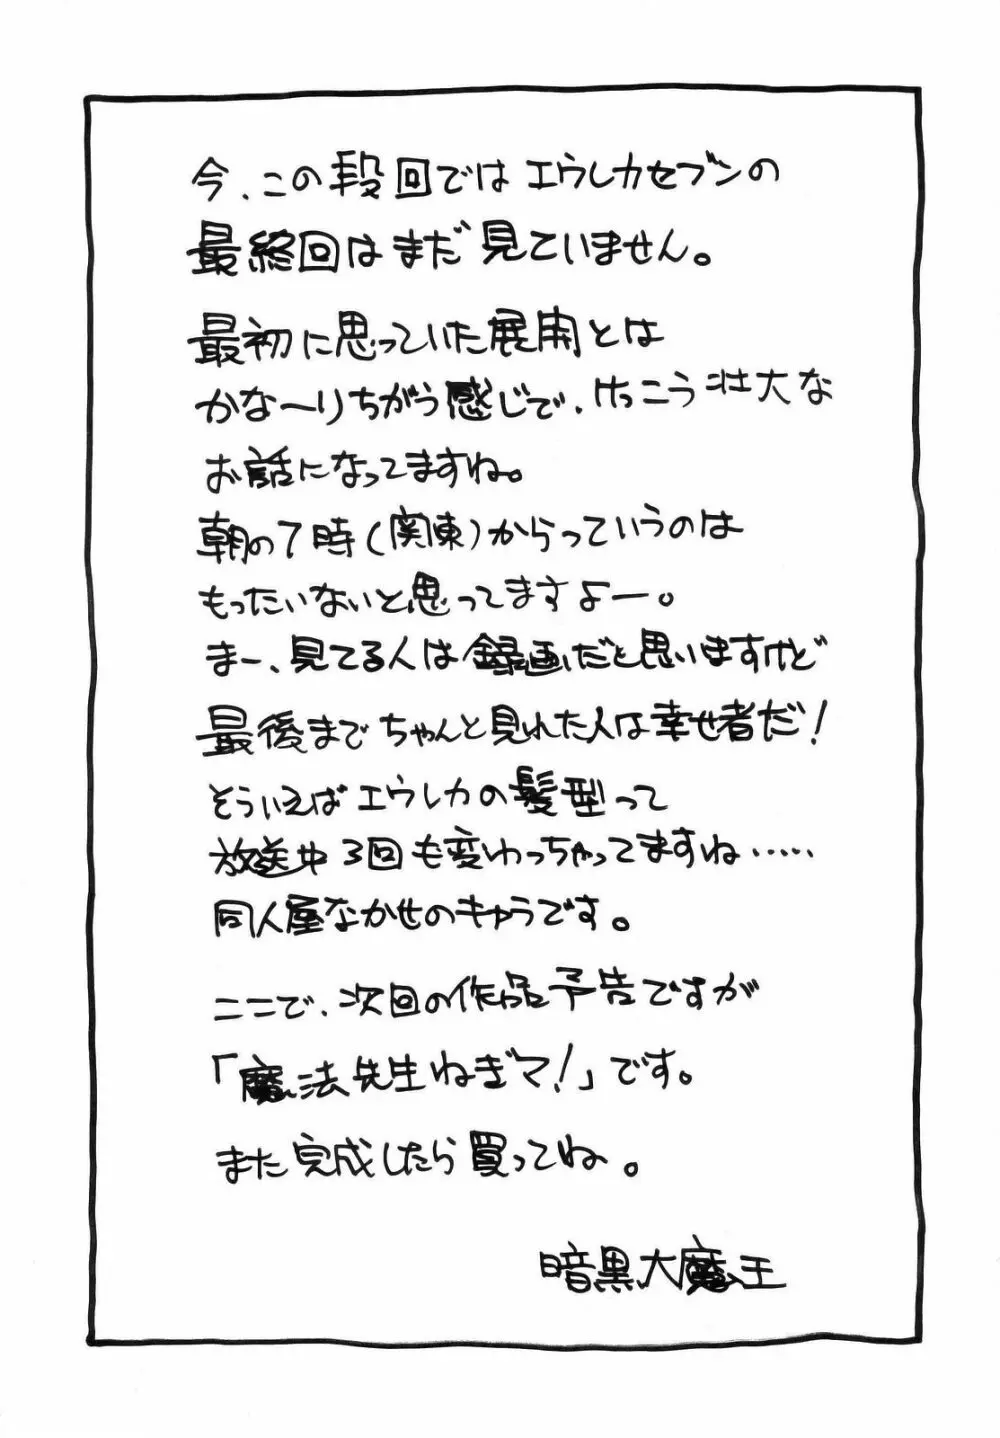 今、この段回では エウレカセブンの
最終回はまだ見ていません。
最初に思っていた展開とは
かな〜りちがう感じで、けっこう壮大な
お話になってますね。
朝の7時(関東)からっていうのは
もったいないと思ってますよー。
まー、見てる人は録画だと思いますけど
最後までちゃんと見れた人は幸せ者だ！
そういえばエウレカの髪型って
放送中3回も変わっちゃってますね……
同人屋なかせのキャラです。
ここで、次回の作品予告ですが
「魔法先生ねぎマ！」です。
また完成したら買ってね。
暗黒大魔王